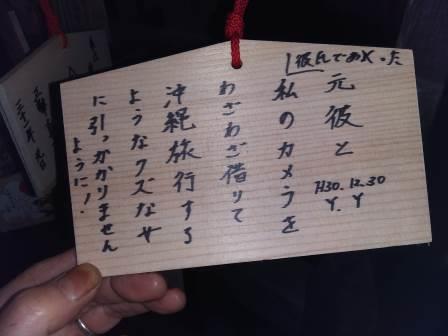 彼氏であった
元彼と
私のカメラを
わざわざ借りて
沖縄旅行する
ようなクズな女
に引っかかりません
ように!!
H30.12.30
Y.Y
三十一年 元旦